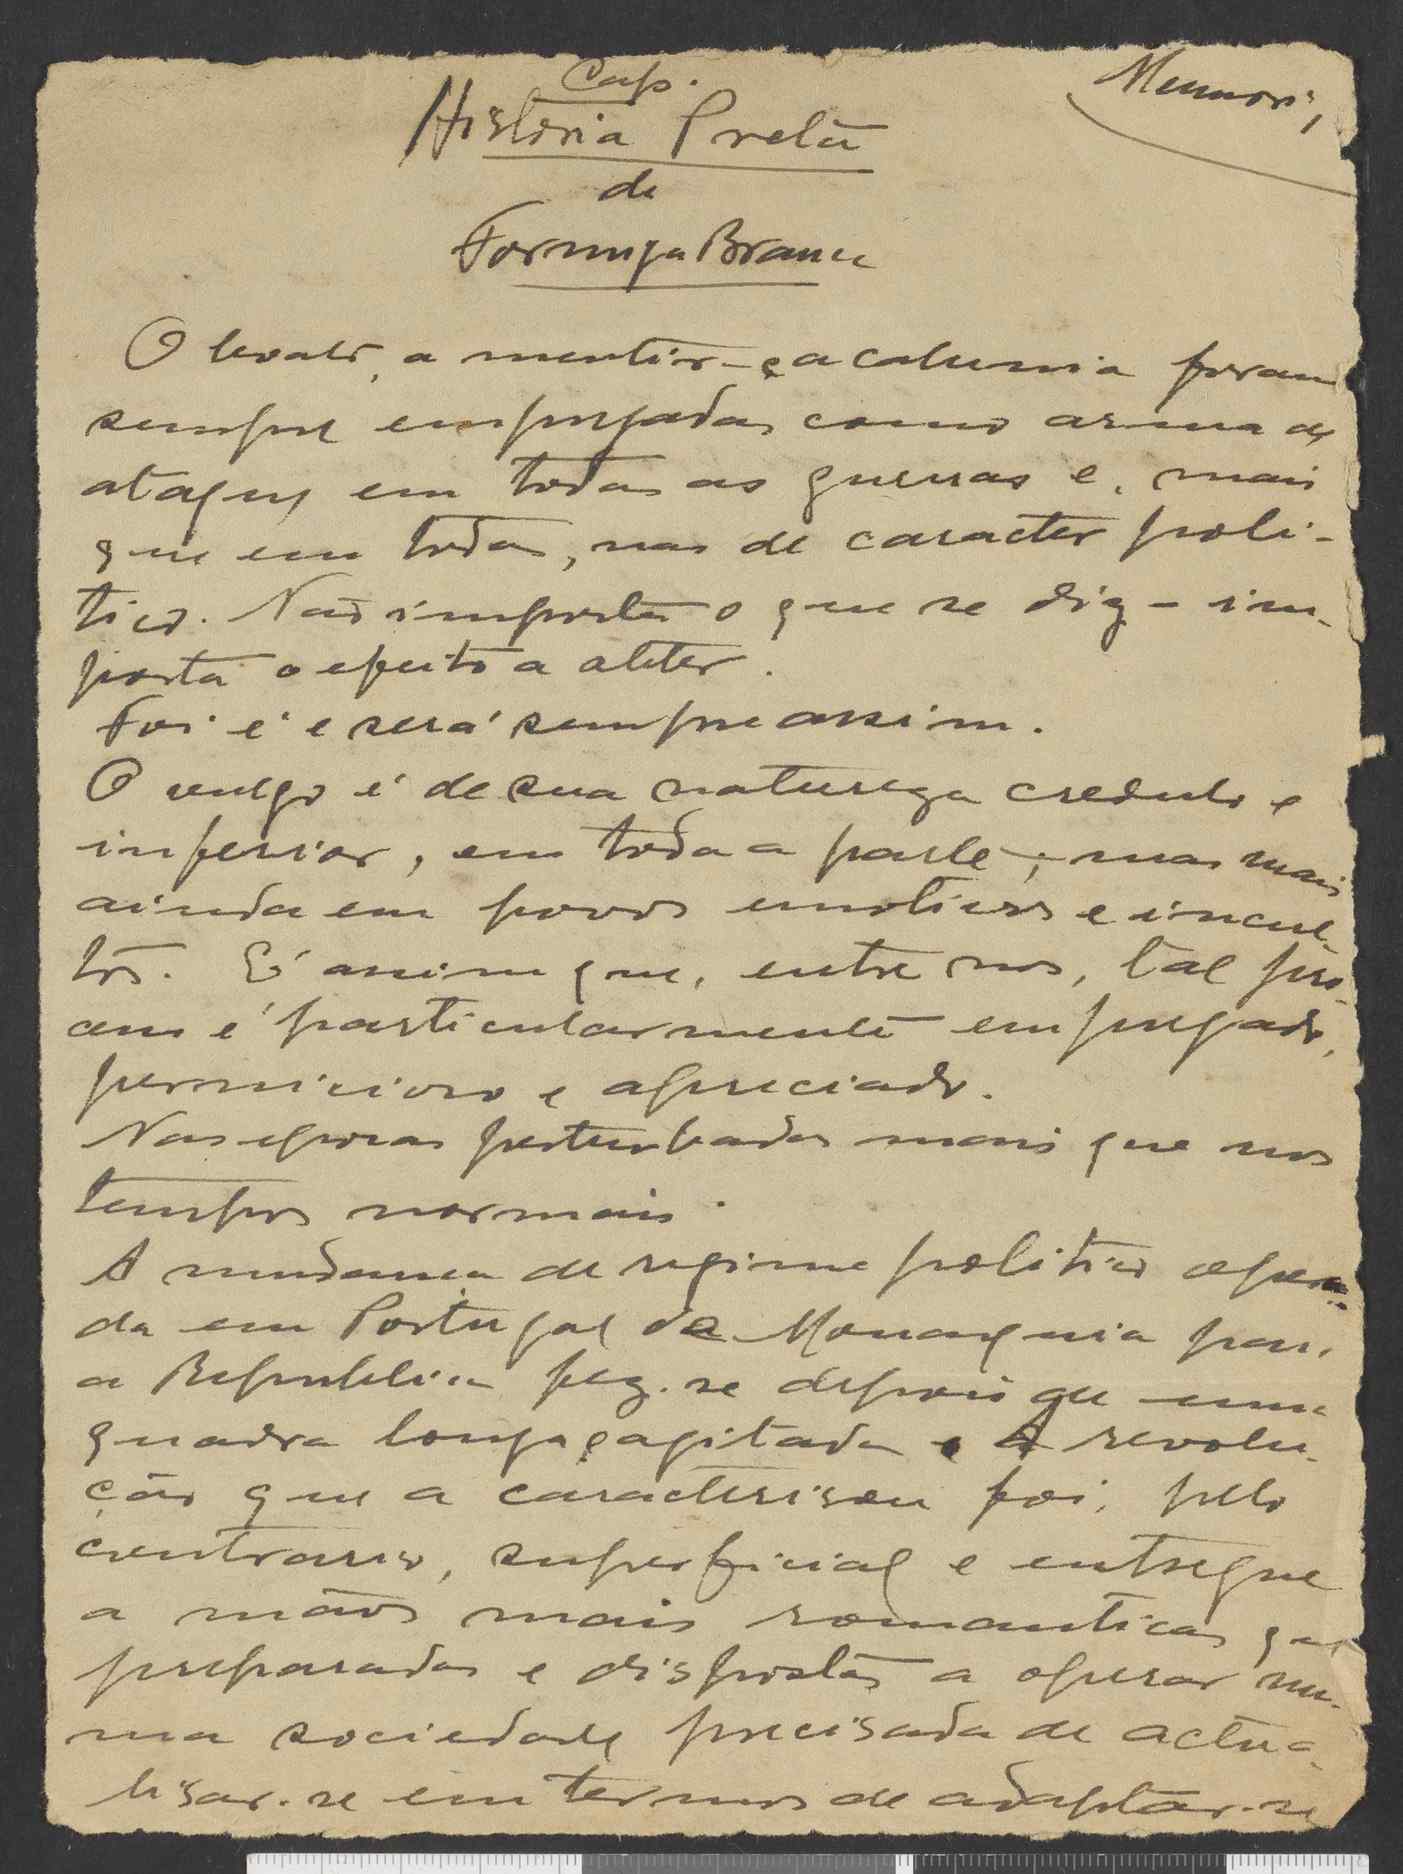 Cap.
Memorias
Historia Preta
da
Formiga Branca
O boato, a mentira e a calumnia foram
sempre empregadas como arma de
ataque em todas as guerras e, mais
que em todas, nas de caracter poli-
tico. Não importa o que se diz - im-
porta o efeito a obter.
Foi é e será sempre assim.
O vulgo é de sua natureza credulo e
inferior, em toda a parte; mas mais
ainda em povos emotivos e incul-
tos. É assim que, entre nos, tal pro-
cesso é particularmente empregado,
pernicioso e apreciado.
Nas epocas perturbadas mais que nos
tempos normais.
A mudança de regime politico opera-
da em Portugal da Monarquia para
a Republica fez-se depois de uma
quadra longa e agitada. A revolu-
ção que a caracterisou foi, pelo
contrario, superficial e entregue
a mãos mais romanticas que
preparadas e dispostas a operar nu-
ma sociedade precisada de actua-
lisar-se em termos de adaptar-se